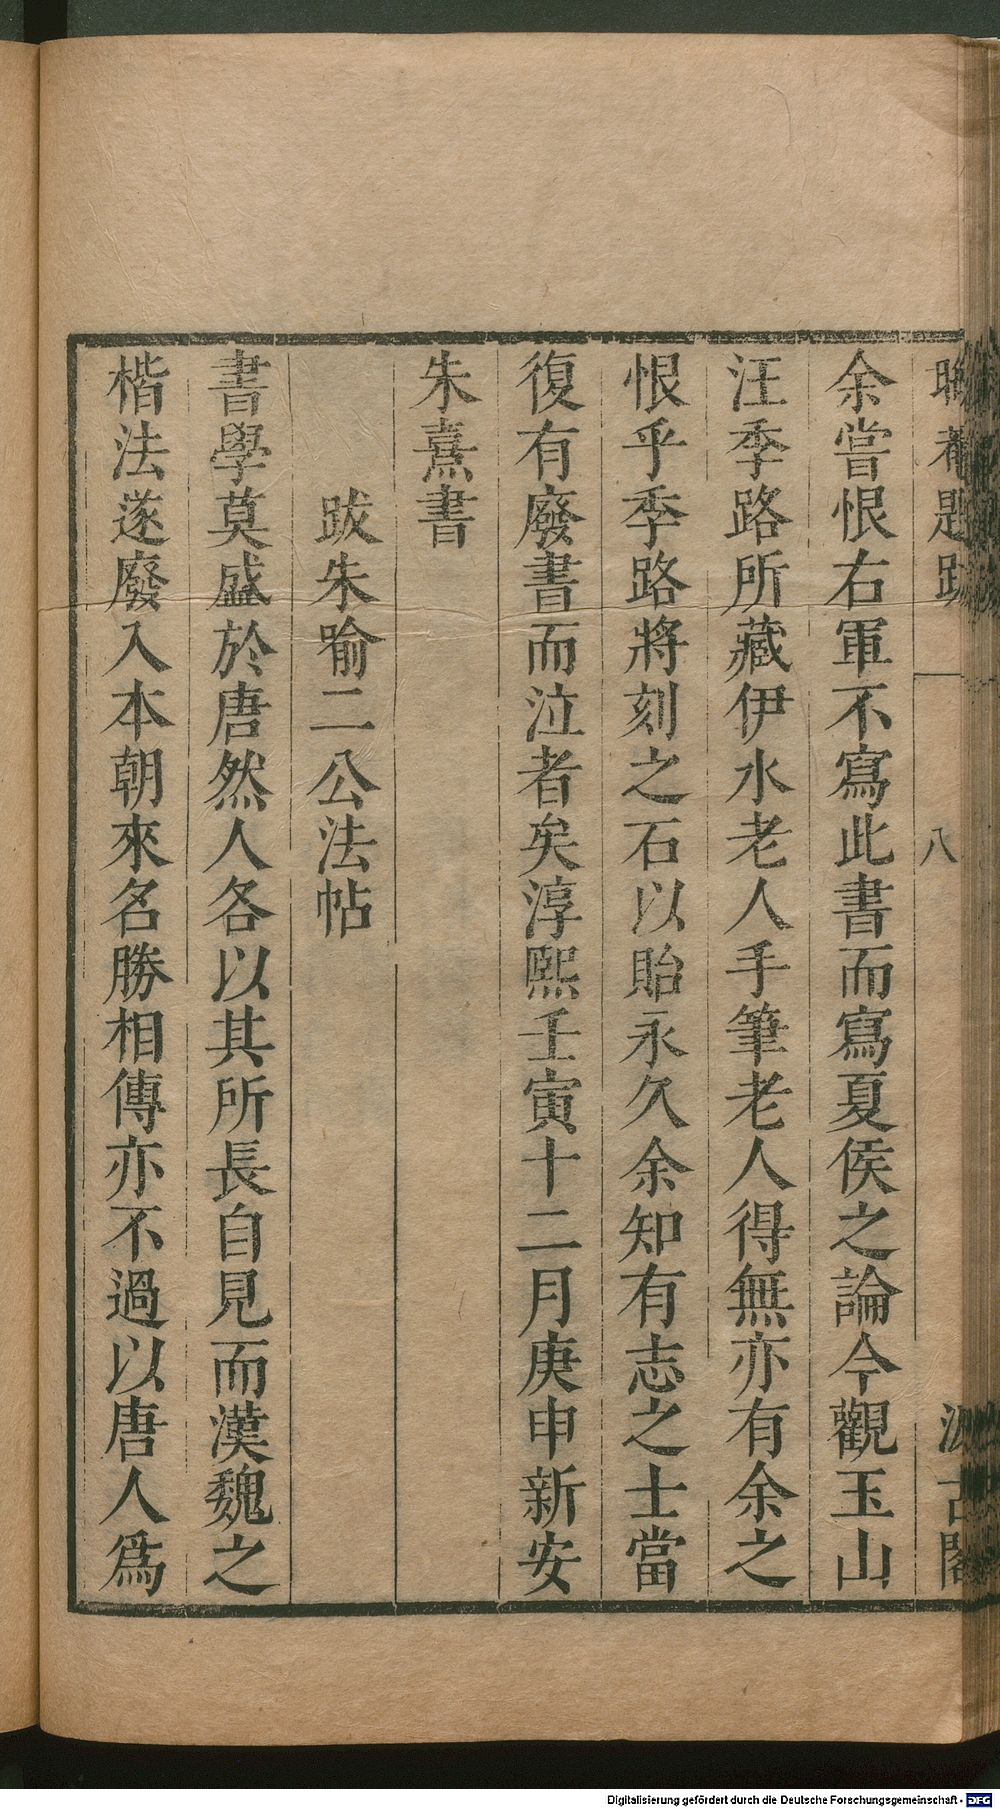 晦菴題跋
八
汲古閣
余嘗恨右軍不寫此書而寫夏侯之論今觀玉山
汪季路所藏伊水老人手筆老人得無亦有余之
恨乎季路將刻之石以貽永久余知有志之士當
復有廢書而泣者矣淳熙壬寅十二月庚申新安
朱熹書
跋朱喻二公法帖
書學莫盛於唐然人各以其所長自見而漢魏之
楷法遂廢入本朝來名勝相傳亦不過以唐人爲
Digitalisierung gefördert durch die Deutsche Forschungsgemeinschaft - DFG